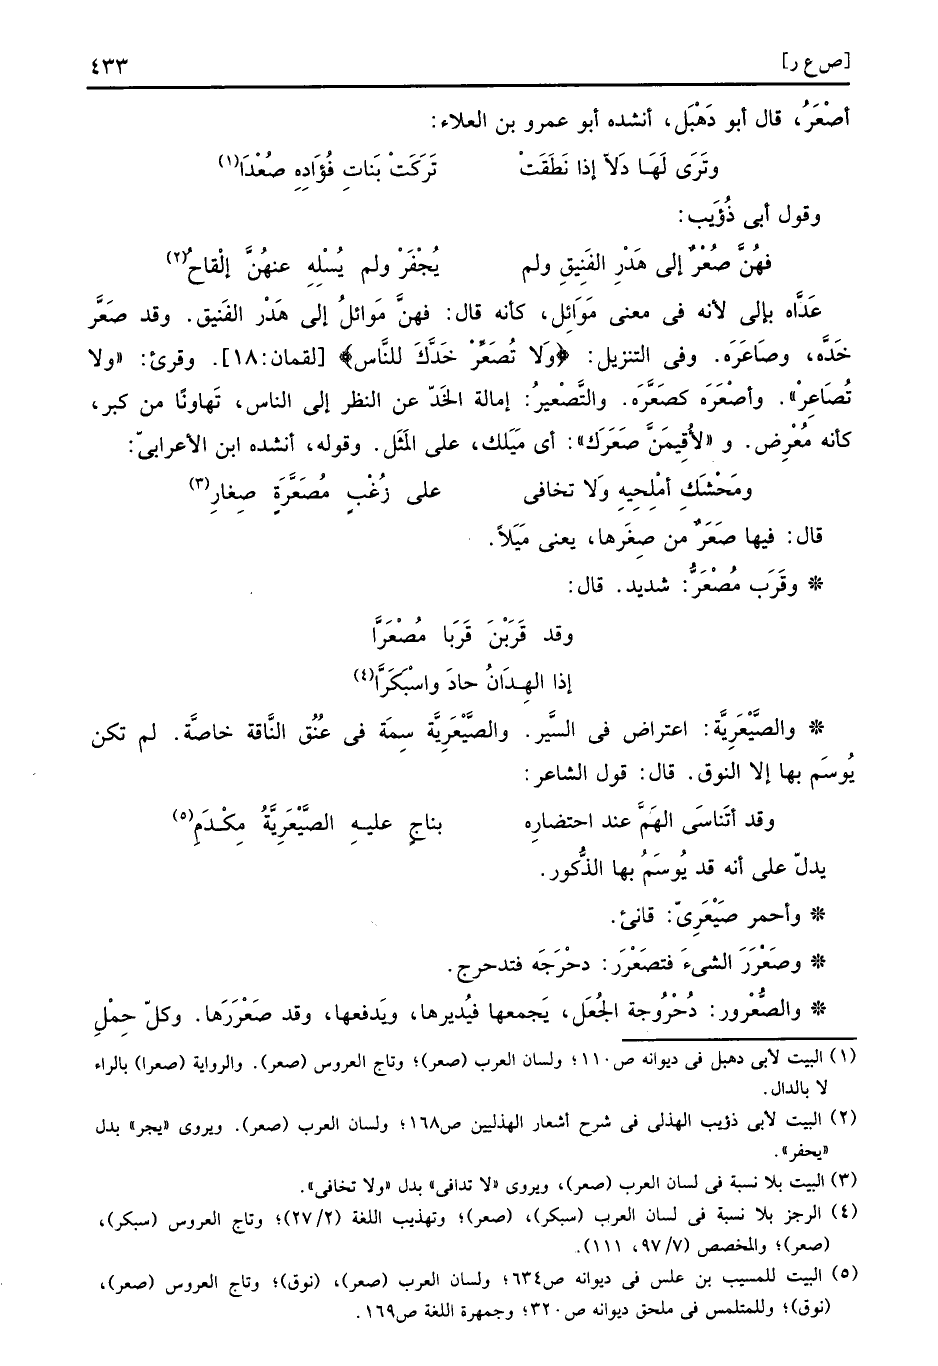 [ص ع ر] ٤٣٣
أصْعَرُ، قال أبو دَهْبَل، أنشده أبو عمرو بن العلاء:
وتَرَى لَهَا دَلاّ إذا نَطَقَتْ تَرَكَتْ بَناتِ فُؤَادِهِ صُعْدَا(١)
وقول أبى ذُؤَيب:
فهُنَّ صُعْرٌ إلى هَدْرِ الفَنِيقِ ولم يُجْفَرْ ولم يُسْلِهِ عنهُنَّ إلْقاحُ(٢)
عَدَّاه بإلى لأنه فى معنى مَوَائِل، كأنه قال: فهنَّ مَوائلُ إلى هَدْر الفَنيق. وقد صَعَّر
خَدَّه، وصَاعَرَه. وفى التنزيل: ﴿وَلَا تُصَعِّرْ خَدَّكَ للنَّاس﴾ [لقمان:١٨]. وقرئ: «ولا
تُصَاعِرْ». وأصْعَرَه كصَعَّرَه. والتَّصْعيرُ: إمالة الخَدّ عن النظر إلى الناس، تَهاونًا من كبر،
كأنه مُعْرِض. و «لأُقيمَنَّ صَعَرَك»: أى مَيَلك، على المَثَل. وقوله، أنشده ابن الأعرابىّ:
ومَحْشَكِ أمْلِحِيهِ وَلَا تخافى على زُغْبٍ مُصَعَّرَةٍ صِغارِ(٣)
قال: فيها صَعَرٌ من صِغَرها، يعنى مَيَلاً.
* وقَرَب مُصْعَرٌّ: شديد. قال:
وقد قَرَبْنَ قَرَبا مُصْعَرَّا
إذا الهِدَانُ حادَ واسْبَكَرَّا(٤)
* والصَّيْعَرِيَّة: اعتراض فى السَّير. والصَّيْعَرِيَّة سِمَة فى عنُق النَّاقة خاصَّة. لم تكن
يُوسَم بها إلا النوق. قال: قول الشاعر:
وقد أتَناسَى الهَمَّ عند احتضارِه بناجٍ عليهِ الصَّيْعَرِيَّةُ مِكْدَمِ(٥)
يدلّ على أنه قد يُوسَمُ بها الذُّكور.
* وأحمر صَيْعَرِىّ: قانئ.
* وصَعْرَرَ الشىءَ فتصَعْرَر: دحْرَجَه فتدحرج.
* والصُّعْرور: دُحْرُوجة الجُعَل، يَجمعها فيُديرها، ويَدفعها، وقد صَعْرَرَها. وكلّ حِمْلِ
(١) البيت لأبى دهبل فى ديوانه ص١١٠؛ ولسان العرب (صعر)؛ وتاج العروس (صعر). والرواية (صعرا) بالراء
لا بالدال.
(٢) البيت لأبى ذؤيب الهذلى فى شرح أشعار الهذليين ص١٦٨؛ ولسان العرب (صعر). ويروى «يجر» بدل
«يحفر».
(٣) البيت بلا نسبة فى لسان العرب (صعر)، ويروى «لا تدافى» بدل «ولا تخافى».
(٤) الرجز بلا نسبة فى لسان العرب (سبكر)، (صعر)؛ وتهذيب اللغة (٢٧/٢)؛ وتاج العروس (سبكر)،
(صعر)؛ والمخصص (٩٧/٧، ١١١).
(٥) البيت للمسيب بن علس فى ديوانه ص٦٣٤؛ ولسان العرب (صعر)، (نوق)؛ وتاج العروس (صعر)،
(نوق)؛ وللمتلمس فى ملحق ديوانه ص٣٢٠؛ وجمهرة اللغة ص١٦٩.